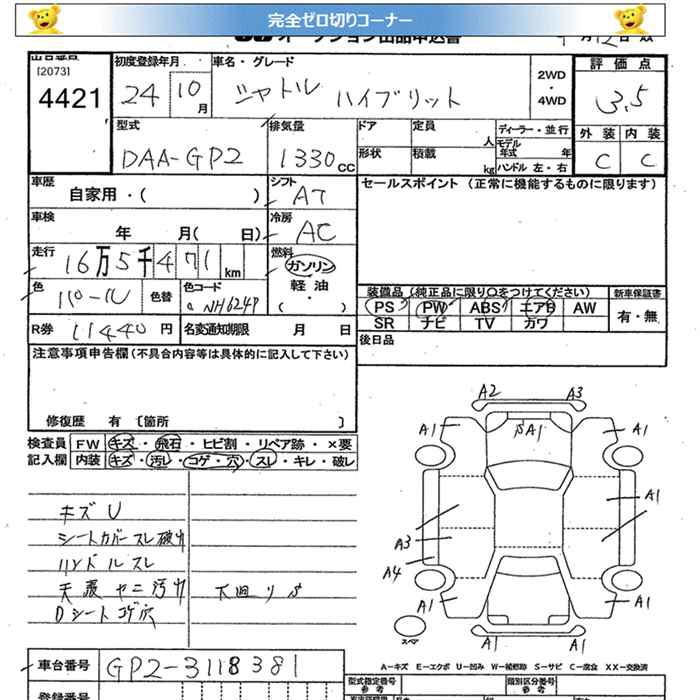 完全ゼロ切りコーナー
オークション出品申込書
出品番号
[2073]
4421
初度登録年月
24 10月
車名・グレード
シャトル ハイブリット
2WD・4WD
評価点
3.5
外装 内装
C C
型式
DAA-GP2
排気量
1330cc
ドア
定員
人
ディーラー・並行
モデル年式 年
形状
積載
kg
ハンドル 左・右
車歴
自家用・( )
シフト
AT
セールスポイント (正常に機能するものに限ります)
車検
年 月( 日)
冷房
AC
走行
16万5千471km
燃料
ガソリン
軽油
・
( )
色
パール
色替
色コード
NH624P
装備品 (純正品に限り○をつけてください)
新車保証書
PS PW ABS エアB AW
SR ナビ TV カワ
有・無
R券 11440円
名変通知期限 月 日
後日品
注意事項申告欄(不具合内容等は具体的に記入して下さい)
修復歴 有 〔箇所 〕
検査員記入欄
FW キズ・飛石・ヒビ割・リペア跡・×要
内装 キズ・汚レ・コゲ・穴・スレ・キレ・破レ
キズU
シートカバースレ破れ
ハンドルスレ
天張ヤニ汚れ
下回りS
Dシートコゲ穴
A2 A3
A1 A1
A1
A1
A3
A4
A1 A1
A1 A1
スペア
A=キズ E=エクボ U=凹み W=補修跡 S=サビ C=腐食 XX=交換済
車台番号
GP2-3118381
型式指定番号
参考
類別区分番号
参考
登録番号